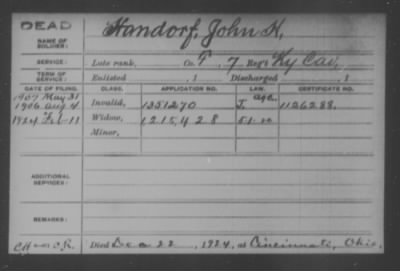 DEAD
NAME OF SOLDIER: Handorf, John H,
SERVICE: Late rank, Co. F, 7 Reg't Ky Cav,
TERM OF SERVICE: Enlisted , 1 Discharged , 1
DATE OF FILING. CLASS. APPLICATION NO. LAW. CERTIFICATE NO.
1907 May 31 age
1906 Aug 4 Invalid, 1351270 J. 1126288.
1924 Feb 11 Widow, 1215428
Minor,
ADDITIONAL SERVICES:
REMARKS:
Died Dec 22, 1924, at Cincinnati, Ohio.